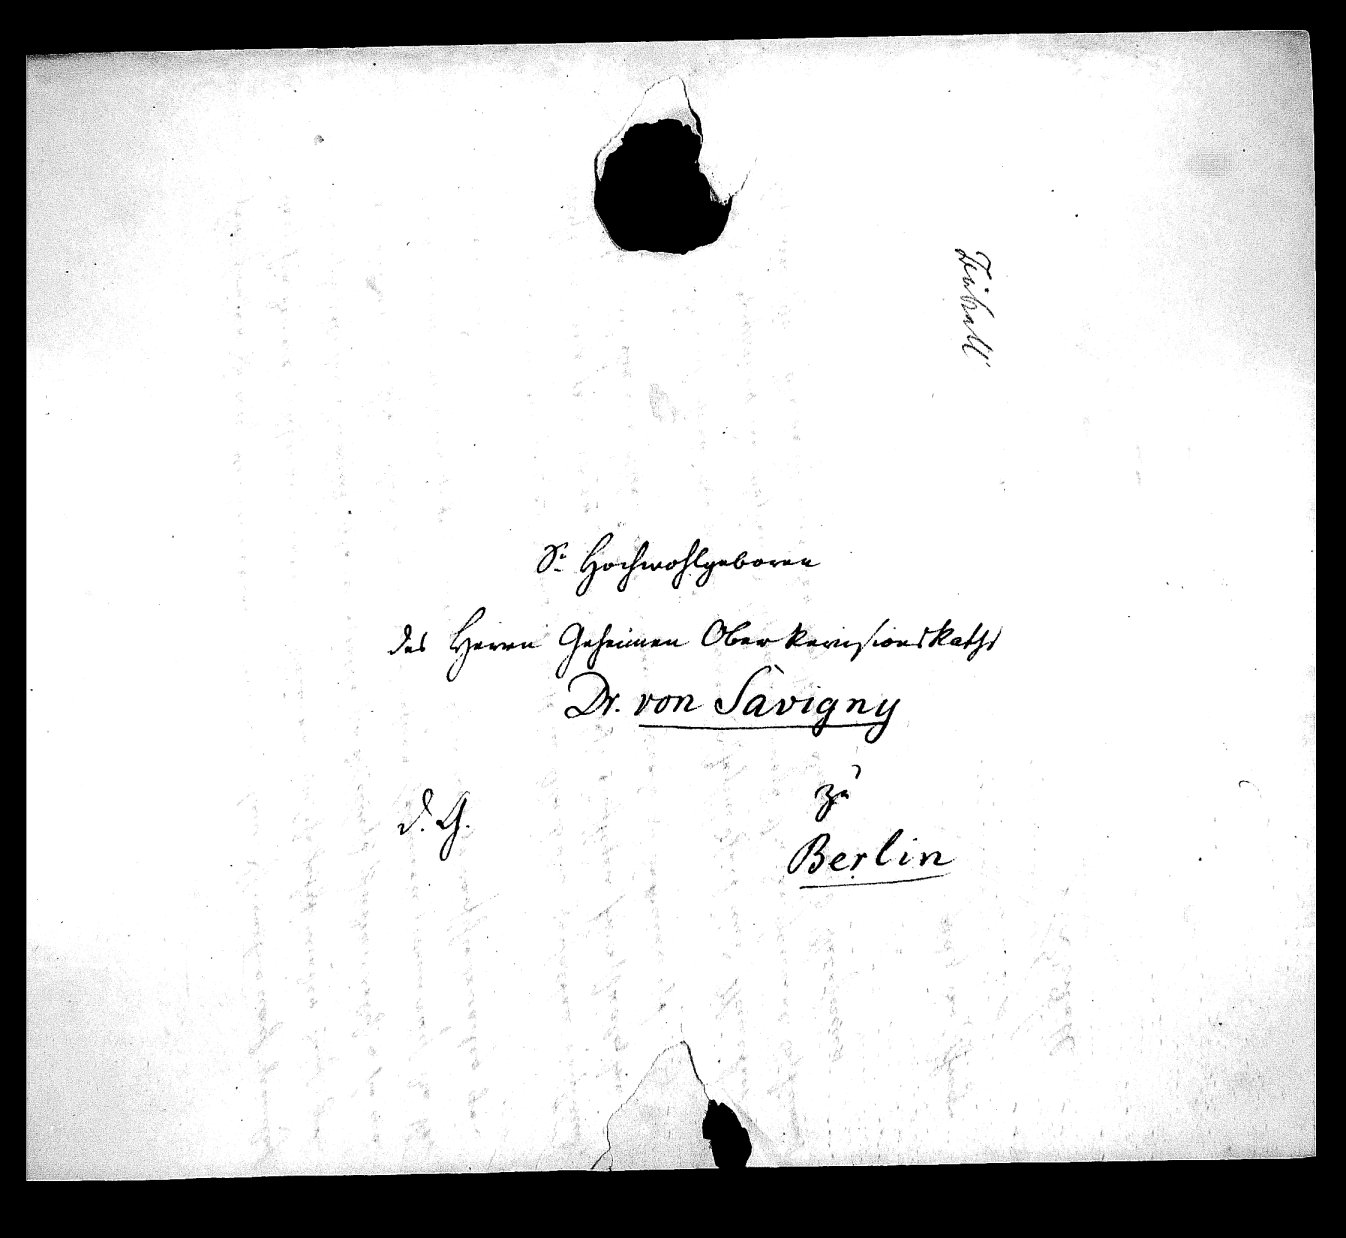 Sr Hochwohlgeboren
des Herrn Geheimen OberRevisionsRaths
Dr. von Savigny
zu
Berlin
d. G.